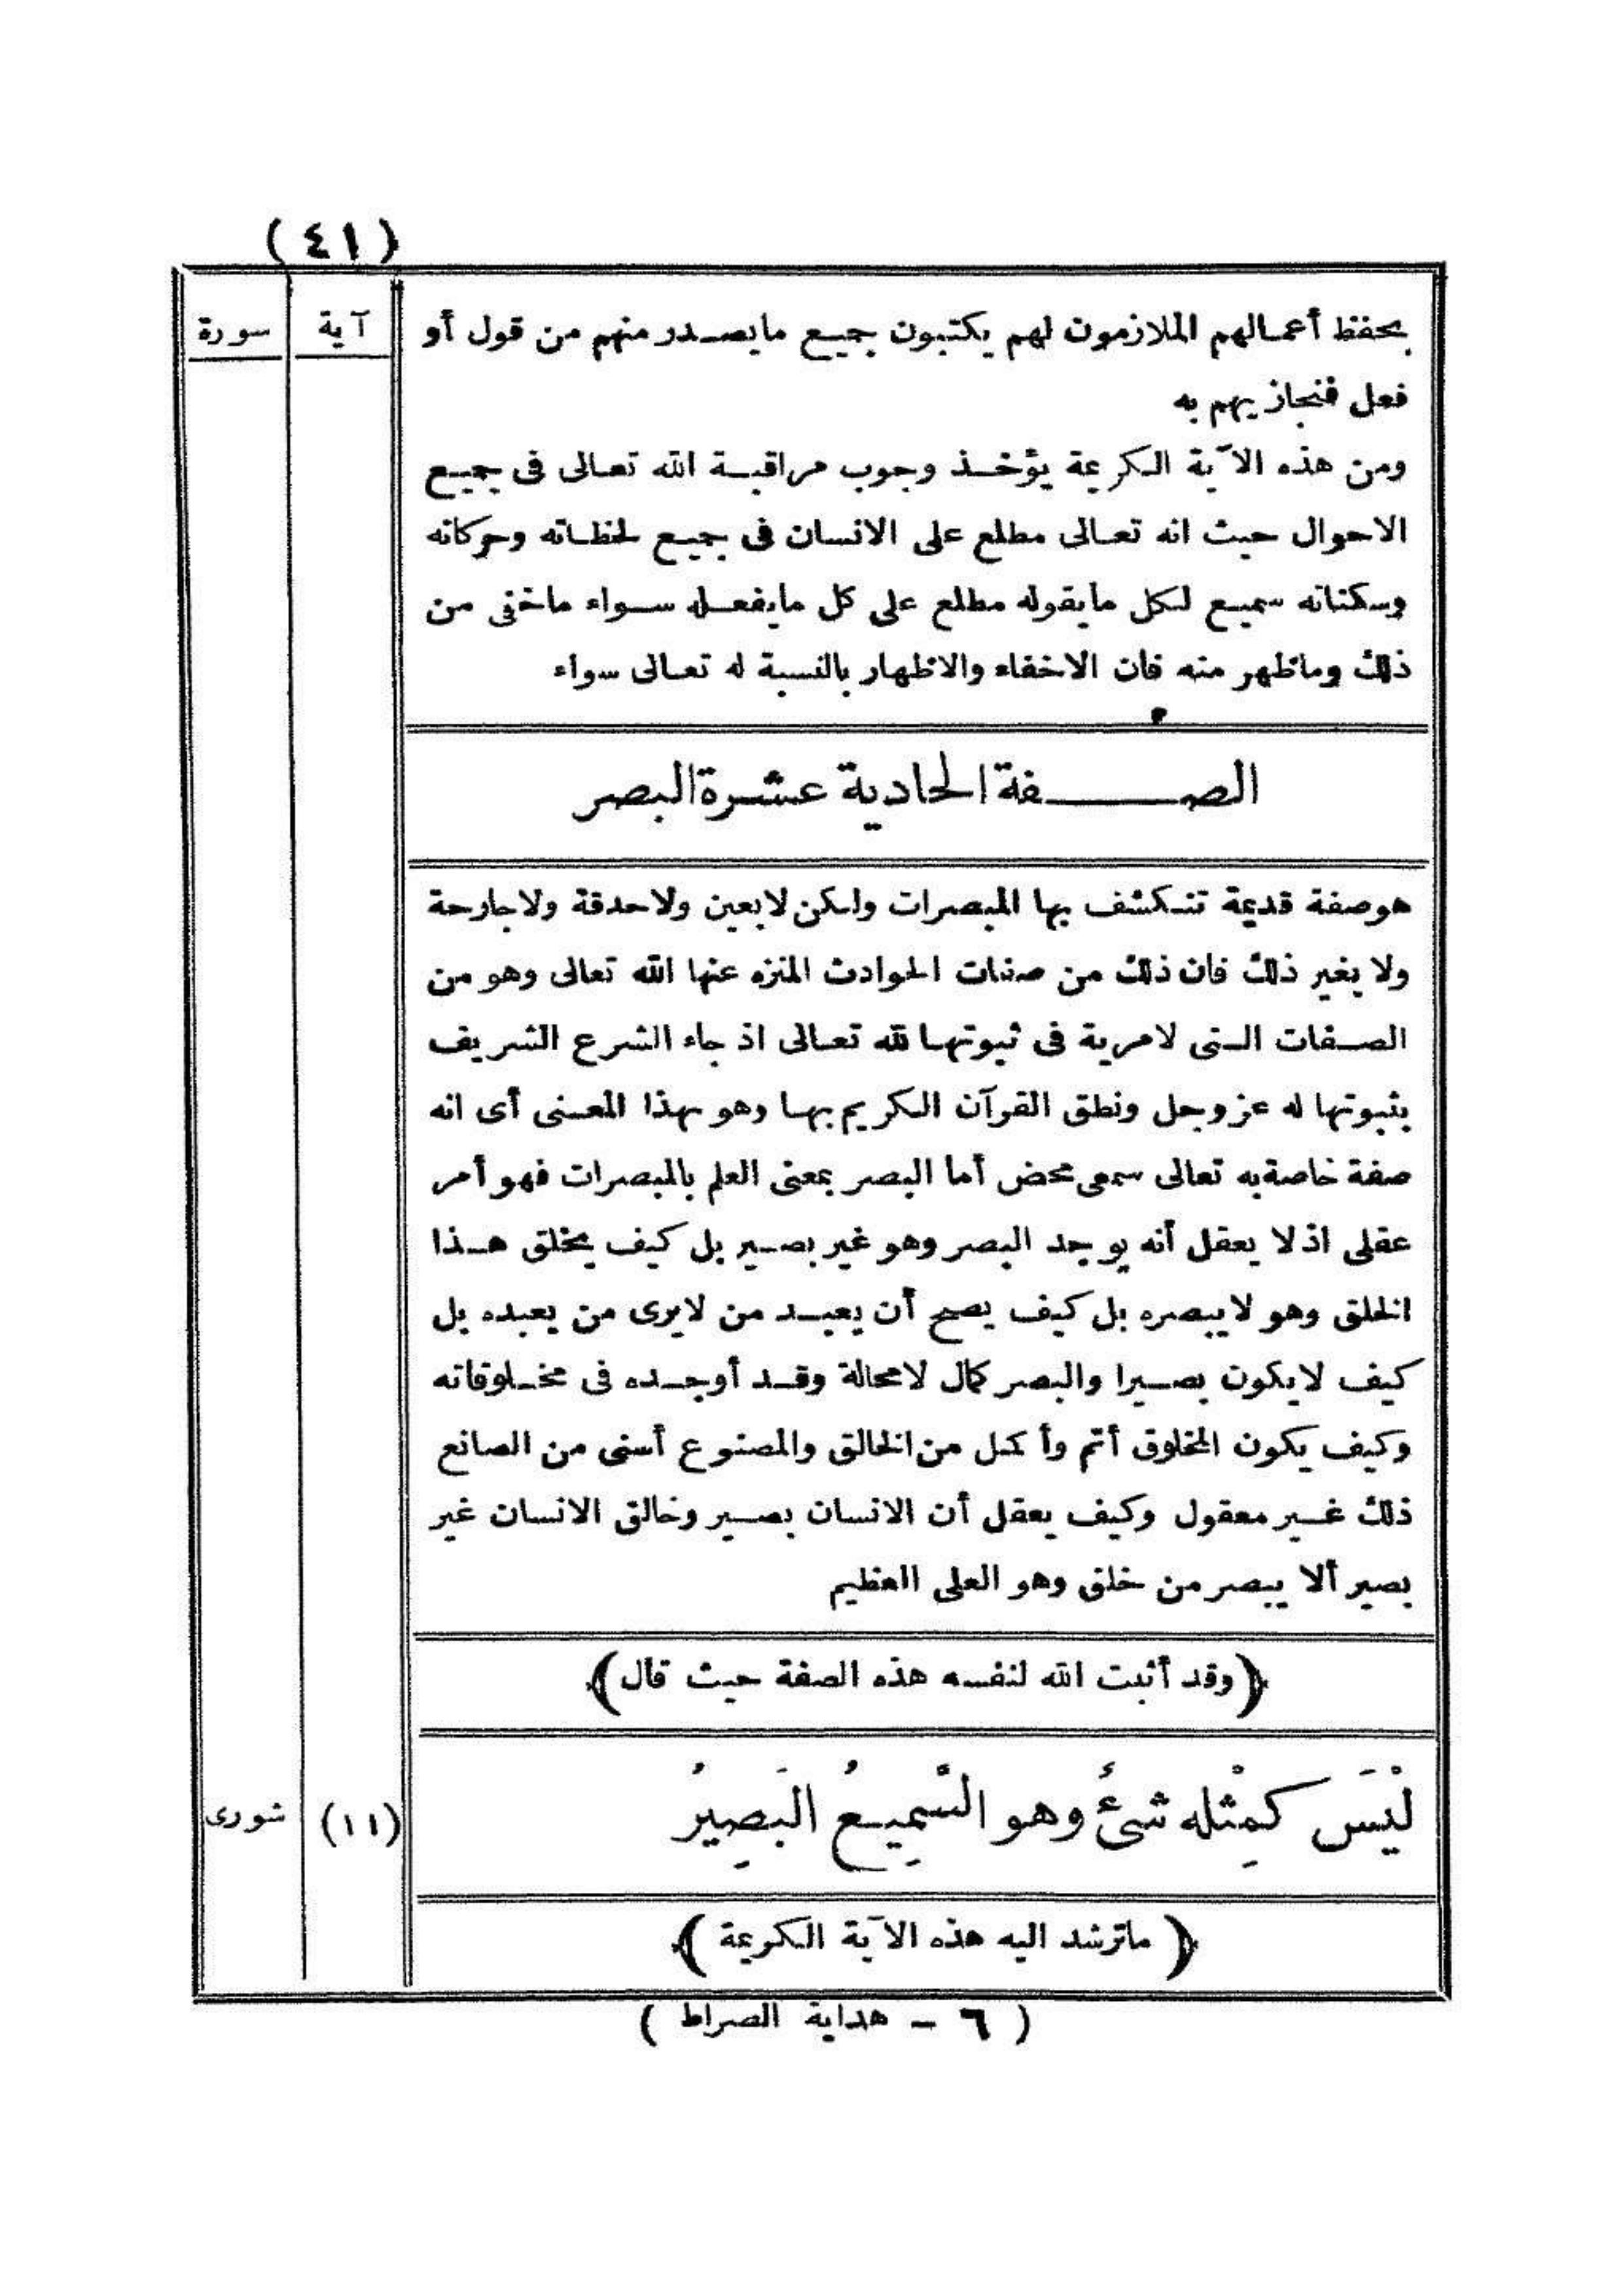 (٤١)
آية
سورة
بحفظ أعمالهم الملازمون لهم يكتبون جميع مايصدر منهم من قول أو
فعل فنجازيهم به
ومن هذه الآية الكريمة يؤخذ وجوب مراقبة الله تعالى فى جميع
الاحوال حيث انه تعالى مطلع على الانسان فى جميع لحظاته وحركاته
وسكناته سميع لكل مايقوله مطلع على كل مايفعله سواء ماخفى من
ذلك وماظهر منه فان الاخفاء والاظهار بالنسبة له تعالى سواء
الصفة الحادية عشرة البصر
هو صفة قديمة تنكشف بها المبصرات ولكن لابعين ولاحدقة ولاجارحة
ولا بغير ذلك فان ذلك من صفات الحوادث المنزه عنها الله تعالى وهو من
الصفات التى لامرية فى ثبوتها لله تعالى اذ جاء الشرع الشريف
بثبوتها له عز وجل ونطق القرآن الكريم بها وهو بهذا المعنى أى انه
صفة خاصة به تعالى سمعى محض أما البصر بمعنى العلم بالمبصرات فهو أمر
عقلى اذ لا يعقل أنه يوجد البصر وهو غير بصير بل كيف يخلق هذا
الخلق وهو لايبصره بل كيف يصح أن يعبد من لايرى من يعبده بل
كيف لايكون بصيرا والبصر كمال لامحالة وقد أوجده فى مخلوقاته
وكيف يكون المخلوق أتم وأكمل من الخالق والمصنوع أسنى من الصانع
ذلك غير معقول وكيف يعقل أن الانسان بصير وخالق الانسان غير
بصير ألا يبصر من خلق وهو العلى العظيم
(وقد أثبت الله لنفسه هذه الصفة حيث قال)
لَيْسَ كَمِثْلِه شَىْءٌ وهو السَّمِيعُ البَصِيرُ
(١١)
شورى
(ماترشد اليه هذه الآية الكريمة)
(٦ - هداية الصراط)